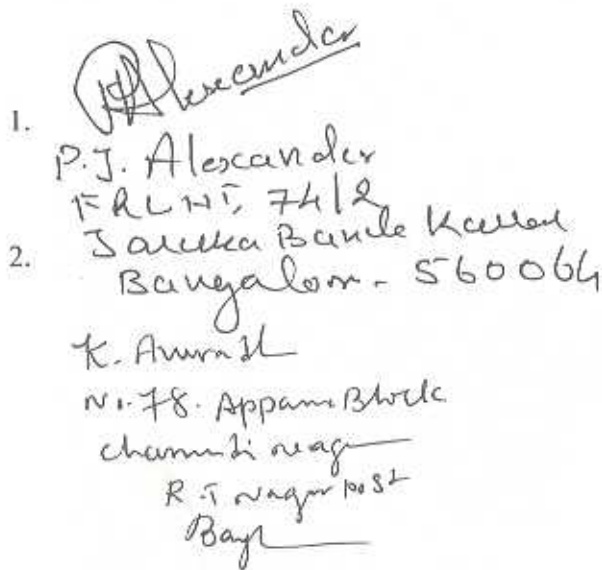 1. Alexander
P.J. Alexander
FRLHT, 74/2
2. Jarakka Bande Kaval
Bangalore - 560064
K. 
No. 78. Appam Block
Chamundi nagar
R.T nagar post